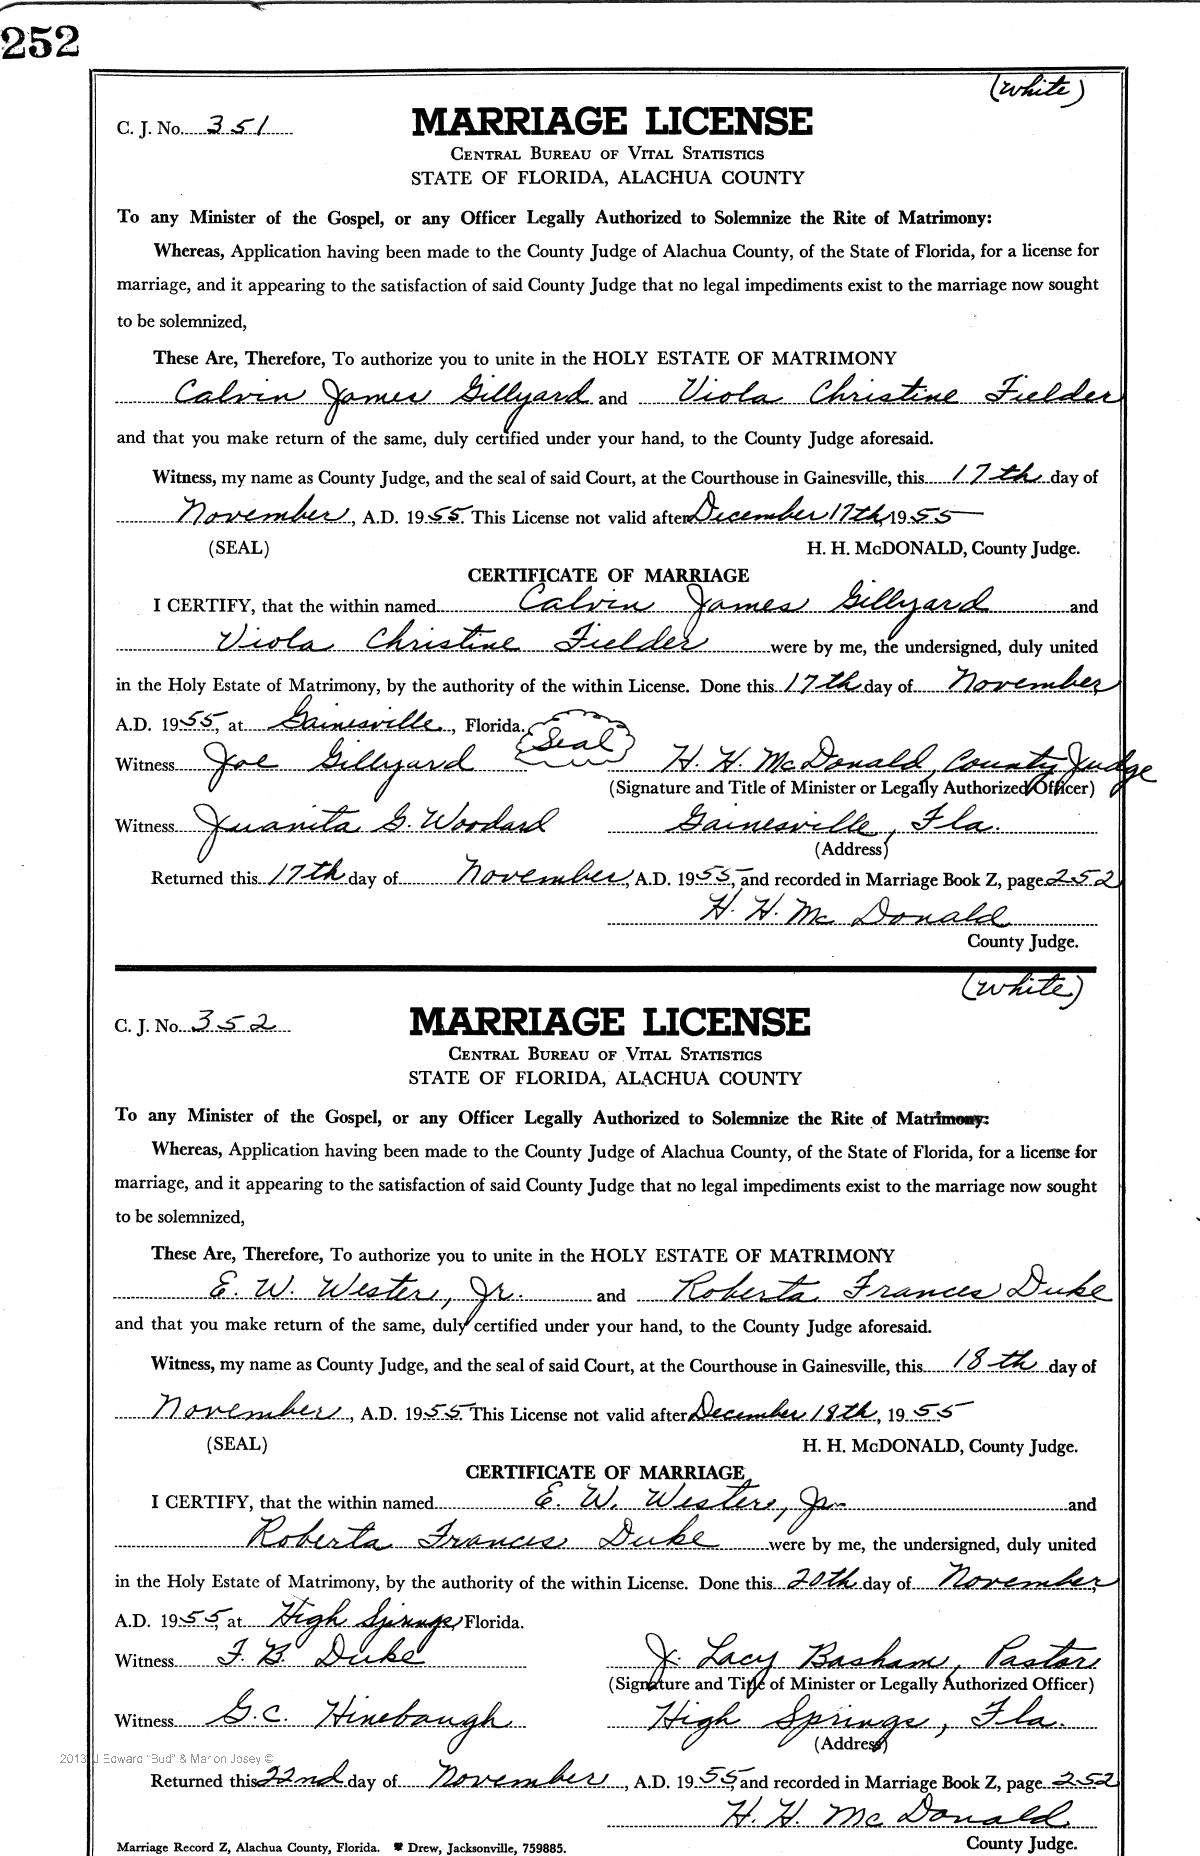 252
(White)
C. J. No. 351
MARRIAGE LICENSE
CENTRAL BUREAU OF VITAL STATISTICS
STATE OF FLORIDA, ALACHUA COUNTY
To any Minister of the Gospel, or any Officer Legally Authorized to Solemnize the Rite of Matrimony:
Whereas, Application having been made to the County Judge of Alachua County, of the State of Florida, for a license for
marriage, and it appearing to the satisfaction of said County Judge that no legal impediments exist to the marriage now sought
to be solemnized,
These Are, Therefore, To authorize you to unite in the HOLY ESTATE OF MATRIMONY
Calvin James Gillyard and Viola Christine Fielder
and that you make return of the same, duly certified under your hand, to the County Judge aforesaid.
Witness, my name as County Judge, and the seal of said Court, at the Courthouse in Gainesville, this 17th day of
November, A.D. 1955. This License not valid after December 17th, 1955
(SEAL) H. H. McDONALD, County Judge.
CERTIFICATE OF MARRIAGE
I CERTIFY, that the within named Calvin James Gillyard and
Viola Christine Fielder were by me, the undersigned, duly united
in the Holy Estate of Matrimony, by the authority of the within License. Done this 17th day of November,
A.D. 1955, at Gainesville, Florida. Seal
Witness Joe Gillyard H. H. McDonald, County Judge
(Signature and Title of Minister or Legally Authorized Officer)
Witness Juanita G. Woodard Gainesville, Fla.
(Address)
Returned this 17th day of November, A.D. 1955, and recorded in Marriage Book Z, page 252
H. H. McDonald
County Judge.
(White)
C. J. No. 352
MARRIAGE LICENSE
CENTRAL BUREAU OF VITAL STATISTICS
STATE OF FLORIDA, ALACHUA COUNTY
To any Minister of the Gospel, or any Officer Legally Authorized to Solemnize the Rite of Matrimony:
Whereas, Application having been made to the County Judge of Alachua County, of the State of Florida, for a license for
marriage, and it appearing to the satisfaction of said County Judge that no legal impediments exist to the marriage now sought
to be solemnized,
These Are, Therefore, To authorize you to unite in the HOLY ESTATE OF MATRIMONY
E. W. Wester, Jr. and Roberta Frances Duke
and that you make return of the same, duly certified under your hand, to the County Judge aforesaid.
Witness, my name as County Judge, and the seal of said Court, at the Courthouse in Gainesville, this 18th day of
November, A.D. 1955. This License not valid after December 18th, 1955
(SEAL) H. H. McDONALD, County Judge.
CERTIFICATE OF MARRIAGE
I CERTIFY, that the within named E. W. Wester, Jr. and
Roberta Frances Duke were by me, the undersigned, duly united
in the Holy Estate of Matrimony, by the authority of the within License. Done this 20th day of November,
A.D. 1955, at High Springs, Florida.
Witness F. B. Duke J. Lacy Basham, Pastor
(Signature and Title of Minister or Legally Authorized Officer)
Witness G.C. Hinebaugh High Springs, Fla.
(Address)
2013 J Edward "Bud" & Marion Josey ©
Returned this 22nd day of November, A.D. 1955, and recorded in Marriage Book Z, page 252
H. H. McDonald
County Judge.
Marriage Record Z, Alachua County, Florida. Drew, Jacksonville, 759885.